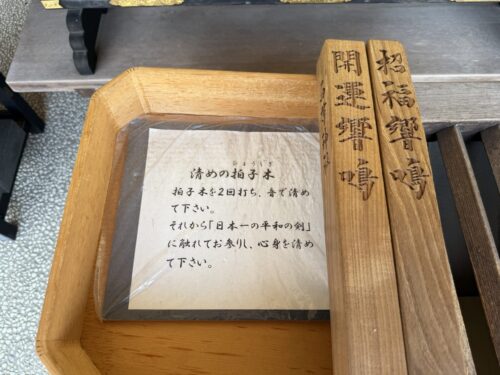 ひょうしぎ
清めの拍子木
拍子木を2回打ち、音で清め
て下さい。
それから「日本一の平和の剣」
に触れてお参りし、心身を清め
て下さい。
開運響鳴
招福響鳴